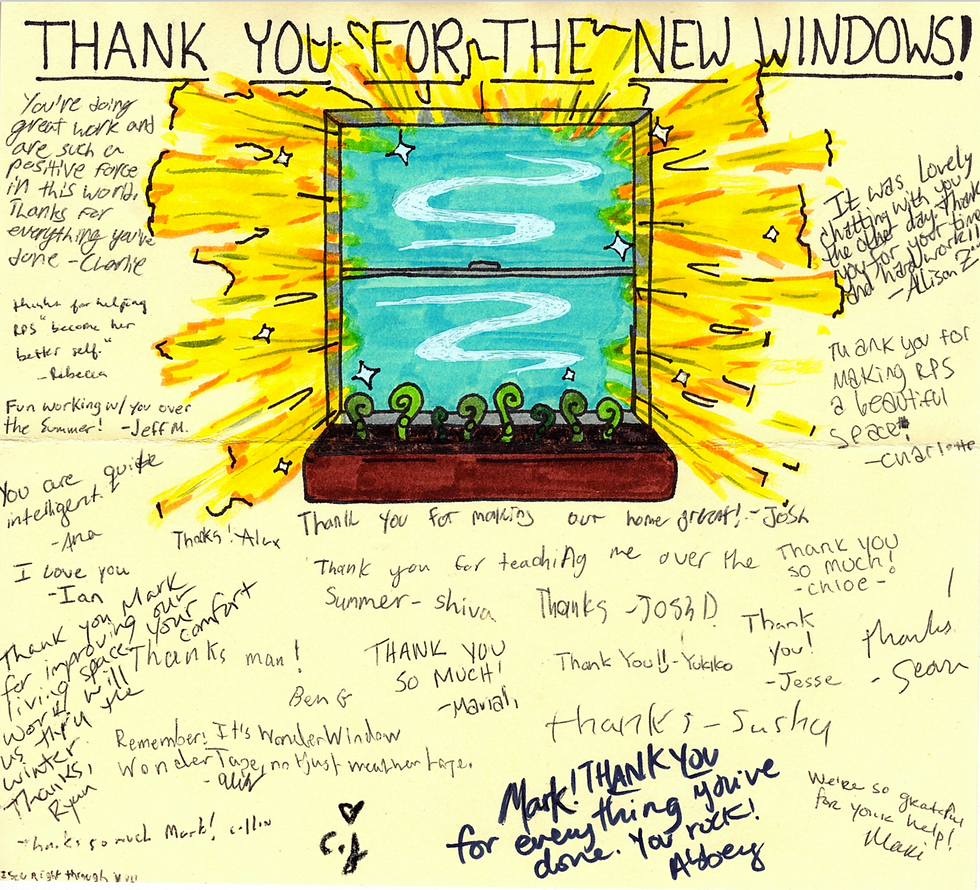 THANK YOU FOR THE NEW WINDOWS!
You're doing
great work and
are such a
positive force
in this world.
Thanks for
everything you've
done -Charlie
thanks for helping
RPS "become her
better self."
-Rebecca
Fun working w/ you over
the Summer! -Jeff M.
You are quite
intelligent.
-Ana
I love you
-Ian
Thank you Mark
for improving our
living space. Your
work will comfort
us thru the
winter.
Thanks,
Ryan
It was lovely
chatting with you
the other day. Thank
you for your time
and hard work!!
-Allison Z.
Thank you for
making RPS
a beautiful
space!
-Charlotte
Thanks! Alex
Thank you for making our home great! -Josh
Thank you for teaching me over the
Summer- shiva
Thank you
so much!
-Chloe-
Thanks -JOSH D.
Thank
you!
-Jesse
Thanks
- Sean
Thanks man!
Ben G
THANK YOU
SO MUCH!
-Mariah
Thank You!! -Yukiko
thanks - Sushy
Remember! It's WonderWindow
WonderTape, not just weather tape.
Mark! THANK YOU
for everything you've
done. You rock!
We're so grateful
for your help!
Maki
Thanks so much Mark! Collin
C.J
I see right through